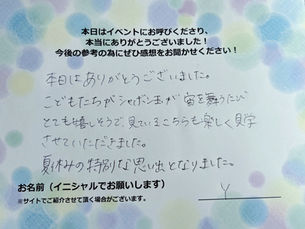 本日はイベントにお呼びくださり、
本当にありがとうございました！
今後の参考の為にぜひ感想をお聞かせください！
本日はありがとうございました。
こどもたちがシャボン玉が宙を舞うたび
とても嬉しそうで、見ているこちらも楽しく見学
させていただきました。
夏休みの特別な思い出となりました。
お名前（イニシャルでお願いします）
※サイトでご紹介させて頂く場合がございます。
Y